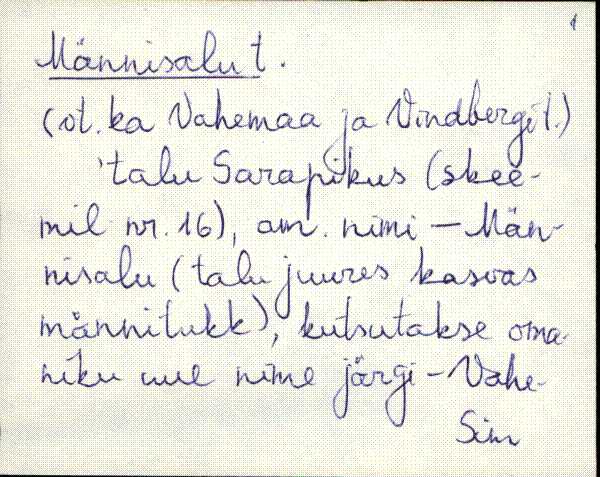 1
Männisalu t.
(vt. ka Vahemaa ja Vindbergi t.)
'talu Sarapikus (skee-
mil nr. 16), am. nimi – Män-
nisalu (talu juures kasvas
männitukk), kutsutakse oma-
niku uue nime järgi – Vahe-
Sim